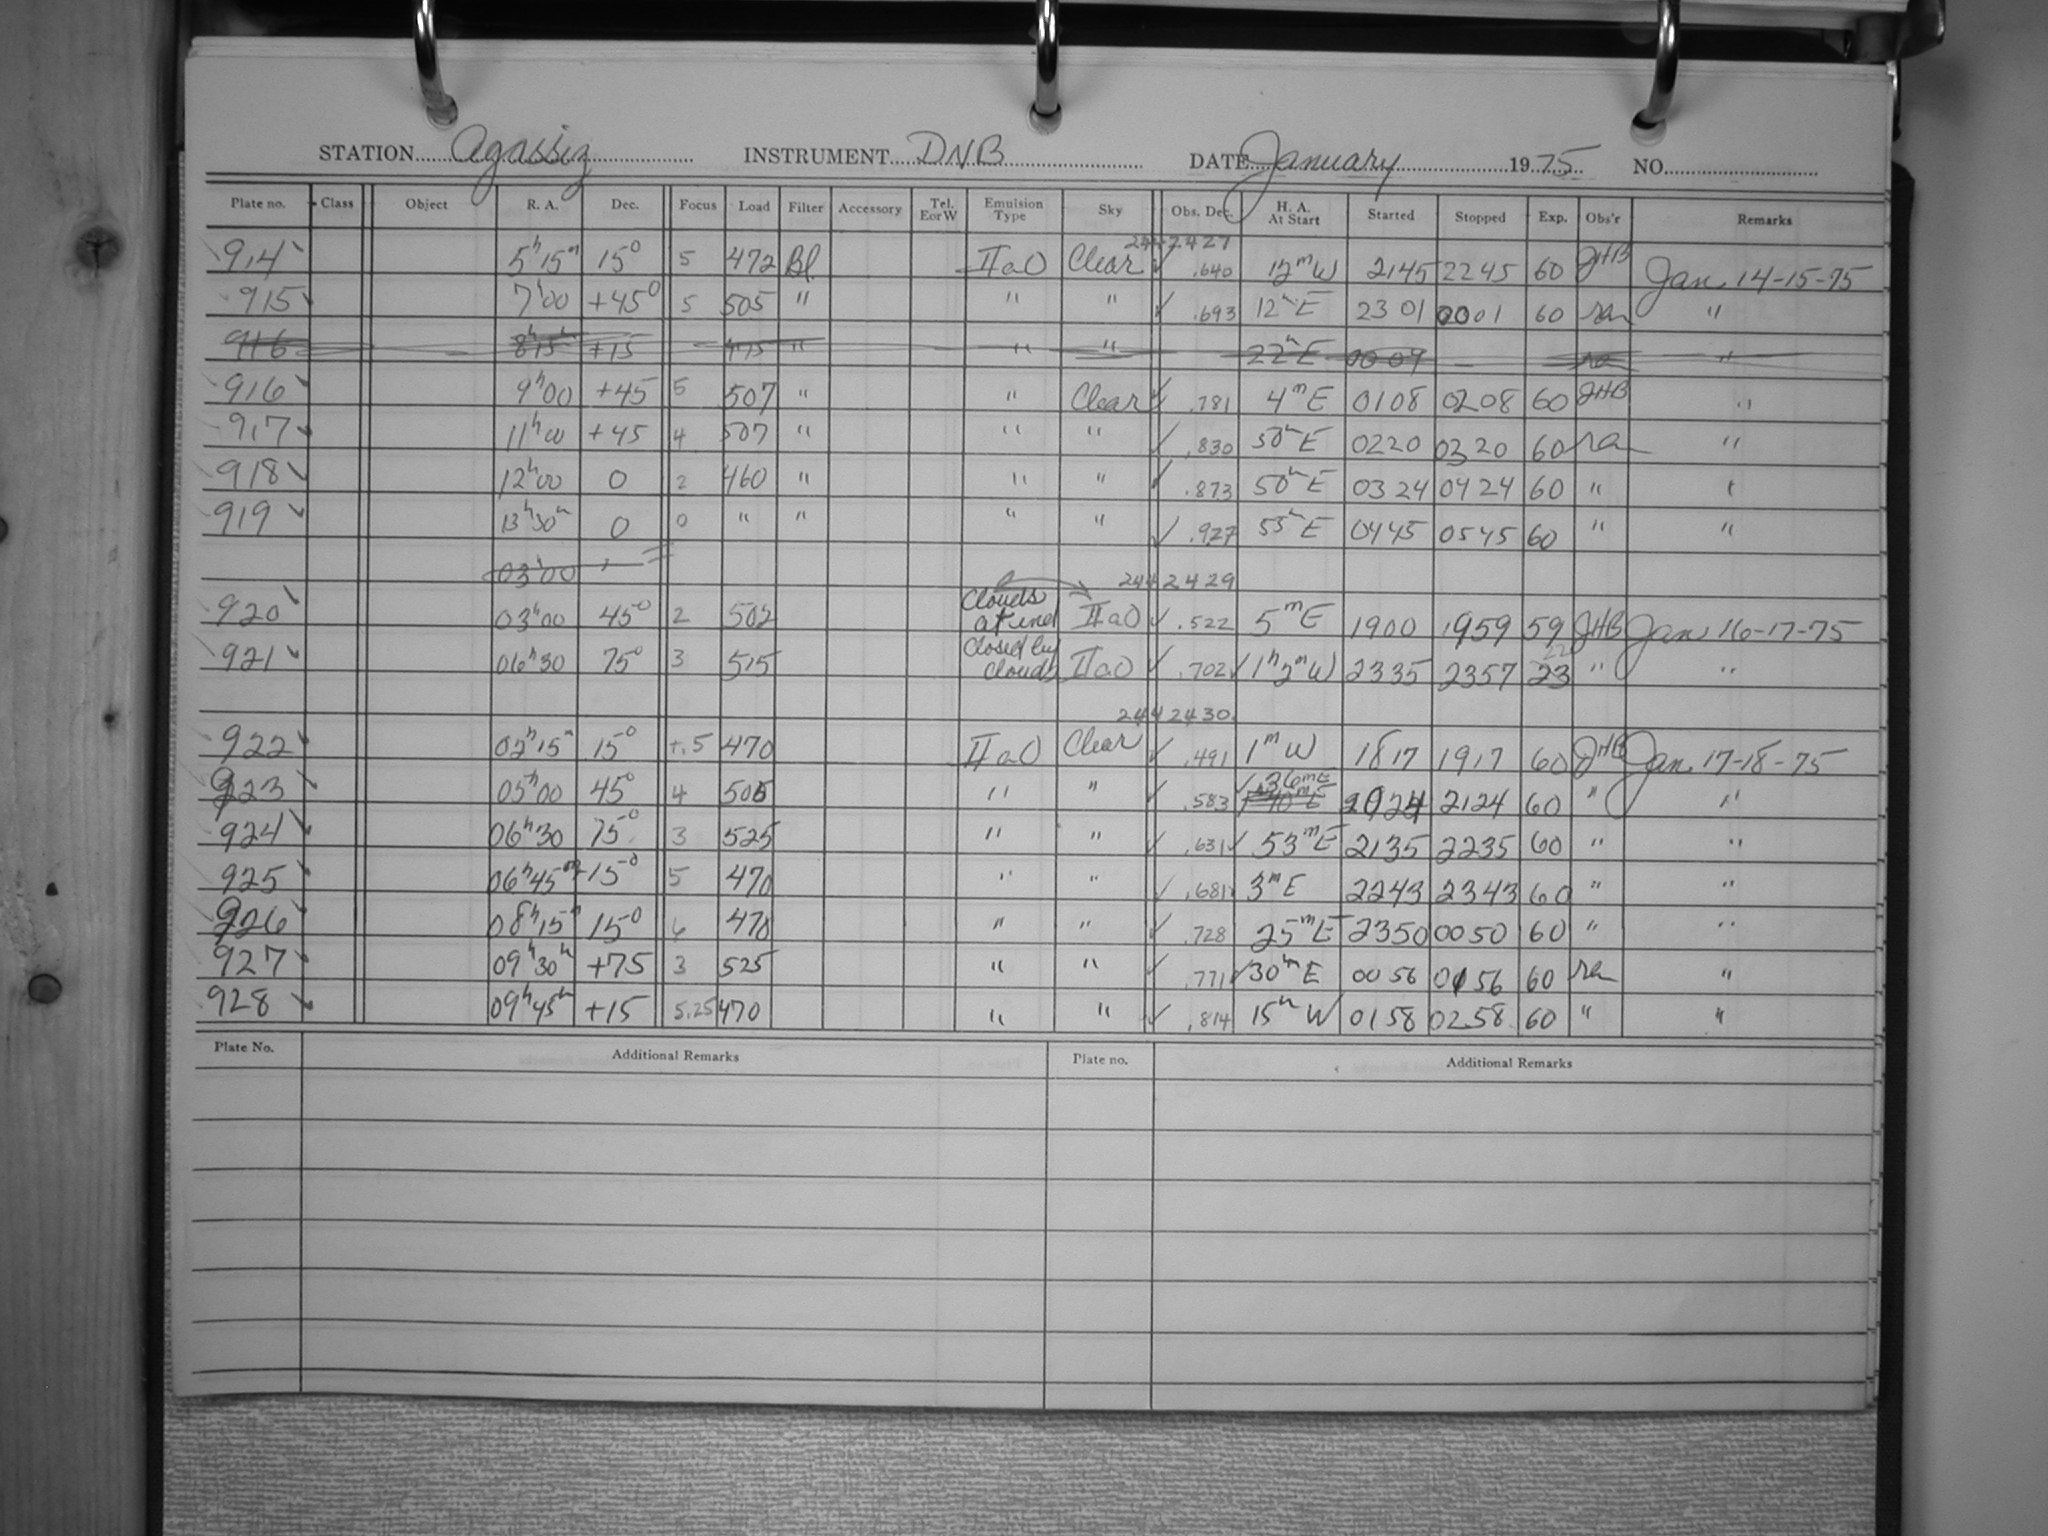 STATION Agassiz INSTRUMENT DNB DATE January 1975 NO.
Plate no. Class Object R. A. Dec. Focus Load Filter Accessory Tel. E or W Emulsion Type Sky Obs. Dec. H. A. At Start Started Stopped Exp. Obs'r Remarks
2442427
914 5h15m 15° 5 472 Bl IIaO Clear .640 12mW 2145 2245 60 JHB Jan. 14-15-75
915 7h00 +45° 5 505 " " " .693 12mE 2301 0001 60 ra "
916 8h15m +15 475 " " " 22mE 0009 ra "
916 9h00 +45 5 507 " " Clear .781 4mE 0108 0208 60 JHB "
917 11h00 +45 4 507 " " " .830 50mE 0220 0320 60 ra "
918 12h00 0 2 460 " " " .873 50mE 0324 0424 60 " "
919 13h30m 0 0 " " " " .927 55mE 0445 0545 60 " "
03h00
2442429
920 03h00 45° 2 502 Clouds at end IIaO .522 5mE 1900 1959 59 JHB Jan. 16-17-75
921 06h30 75° 3 515 Closed by Clouds IIaO .702 1h2mW 2335 2357 23 22 " "
2442430
922 02h15m 15° +.5 470 IIaO Clear .491 1mW 1817 1917 60 JHB Jan. 17-18-75
923 05h00 45° 4 505 " " .583 36mE 2024 2124 60 " "
924 06h30 75° 3 525 " " .631 53mE 2135 2235 60 " "
925 06h45m +15° 5 470 " " .681 3mE 2243 2343 60 " "
926 08h15m 15° 6 470 " " .728 25mE 2350 0050 60 " "
927 09h30m +75 3 525 " " .771 30mE 0056 0156 60 ra "
928 09h45m +15 5.25 470 " " .814 15mW 0158 0258 60 " "
Plate No. Additional Remarks Plate no. Additional Remarks